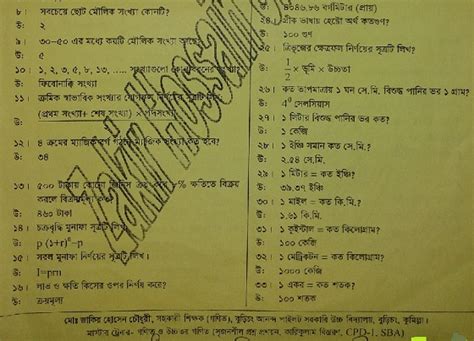 ৮। সবচেয়ে ছোট মৌলিক সংখ্যা কোনটি?
উ: ২
৯। ৩০-৫০ এর মধ্যে কয়টি মৌলিক সংখ্যা আছে?
উ: ৫
১০। ১, ২, ৩, ৫, ৮, ১৩, ..... সংখ্যাগুলো
উ: ফিবোনাক্কি সংখ্যা
১১। ক্রমিক স্বাভাবিক সংখ্যার যোগফল নির্ণয়ের সূত্রটি লিখ?
(প্রথম সংখ্যা+ শেষ সংখ্যা) × পদসংখ্যা
১২। ৪ ক্রমের ম্যাজিক সংখ্যা কত হবে?
উ: ৩৪
১৩। ৫০০ টাকায় কোনো জিনিস ক্রয় করে % ক্ষতিতে বিক্রয়
করলে বিক্রয়মূল্য কত?
উ: ৪৬০ টাকা
১৪। চক্রবৃদ্ধি মুনাফা সূত্রটি লিখ।
উ: p (1+r)ⁿ-p
১৫। সরল মুনাফা নির্ণয়ের সূত্রটি লিখ।
উ: I=prn
১৬। লাভ ও ক্ষতি কিসের ওপর নির্ণয় করে?
উ: ক্রয়মূল্য
উ: ৪০৪৬.৮৬ বর্গমিটার (প্রায়)
২৪। গ্রীক ভাষায় হেক্টো অর্থ কতগুণ?
উ: ১০০ গুণ
২৫। ত্রিভুজের ক্ষেত্রফল নির্ণয়ের সূত্রটি লিখ?
উ: 1/2 × ভূমি × উচ্চতা
২৬। কত তাপমাত্রায় ১ ঘন সে.মি. বিশুদ্ধ পানির ভর ১ গ্রাম?
উ: 4⁰ সেলসিয়াস
২৭। ১ লিটার বিশুদ্ধ পানির ভর কত?
উ: ১ কেজি
২৮। ১ ইঞ্চি সমান কত সে.মি.?
উ: ২.৫৪ সে.মি.
২৯। ১ মিটার = কত ইঞ্চি?
উ: ৩৯.৩৭ ইঞ্চি
৩০। ১ মাইল = কত কি.মি.?
উ: ১.৬১ কি.মি.
৩১। ১ কুইন্টাল = কত কিলোগ্রাম?
উ: ১০০ কেজি
৩২। ১ মেট্রিকটন = কত কিলোগ্রাম?
উ: ১০০০ কেজি
৩৩। ১ একর = কত শতক?
উ: ১০০ শতক
মোঃ জাকির হোসেন চৌধুরী, সহকারী শিক্ষক (গণিত), বুড়িচং আনন্দ পাইলট সরকারি উচ্চ বিদ্যালয়, বুড়িচং, কুমিল্লা।
মাস্টার ট্রেনার- গণিত ও উচ্চতর গণিত (সৃজনশীল প্রশ্ন প্রণয়ন, কারিকুলাম বিস্তরণ, CPD-1, SBA)